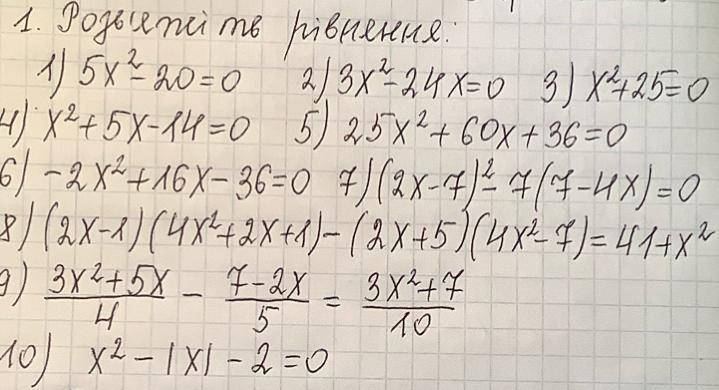 1. Розв'яжіть рівняння:
1) 5x²-20=0 2) 3x²-24x=0 3) x²+25=0
4) x²+5x-14=0 5) 25x²+60x+36=0
6) -2x²+16x-36=0 7) (2x-7)²-7(7-4x)=0
8) (2x-1)(4x²+2x+1)-(2x+5)(4x²-7)=41+x²
9) (3x²+5x)/4 - (7-2x)/5 = (3x²+7)/10
10) x²-|x|-2=0